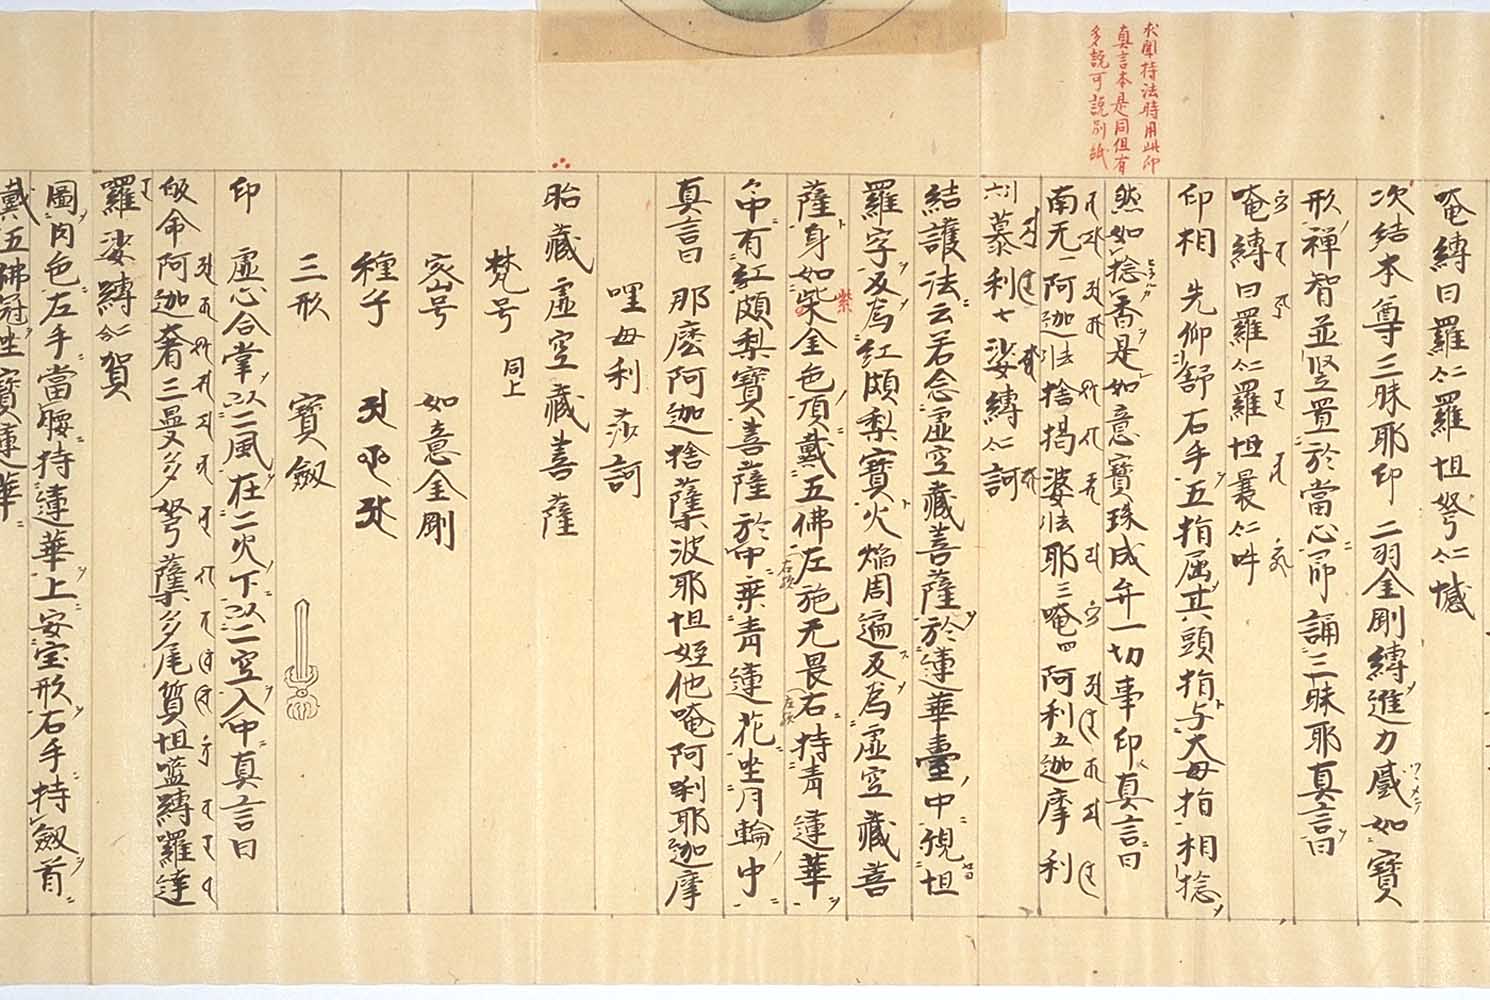 唵縛曰羅仁羅怛弩仁憾
次結本尊三昧耶印二羽金剛縛進力蹙如寶
形禪智並竪置於當心前誦三昧耶真言曰
唵縛曰羅仁羅怛曩仁吽
印相 先仰舒右手五指屈其頭指与大母指相捻
然如捻香是如意寶珠成弁一切事印真言曰
求聞持法時用此印
真言本是同但有
多説可説別紙
南无一阿迦捨揭婆耶三唵四阿利五迦摩利
六慕利七娑縛仁訶
結護法云若念虛空藏菩薩於蓮華臺中観怛
羅字反為紅頗梨寶火焔周遍反為虛空藏菩
薩身如柴金色頂戴五佛左施无畏右持青蓮華
紫
右歟
左歟
中有紅頗梨寶菩薩於中乗青蓮花坐月輪中
真言曰 那麼阿迦捨薩䒾波耶怛姪他唵阿唎耶迦摩
哩毋利莎訶
胎藏虛空藏菩薩
梵号 同上
密号 如意金剛
種子
三形 寶劔
印 虛心合掌以二風在二火下以二空入中真言曰
皈命阿迦奢三曼多弩薩多尾質怛嚂縛囉達
羅娑縛仁賀
圖肉色左手當腰持蓮華上安宝形右手持劔首
戴五佛冠坐寶蓮華